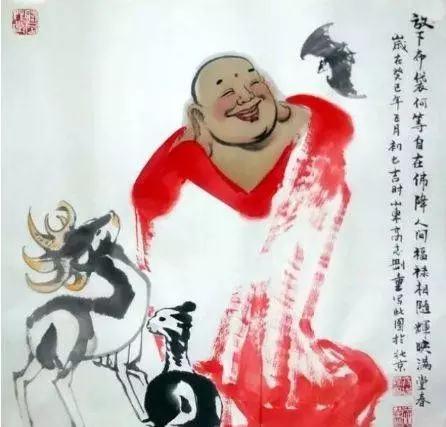 放下布袋何等自在佛降人间福禄相随輝映满堂春
歲在癸巳年五月初七吉时山東高志刚重写此圖於北京